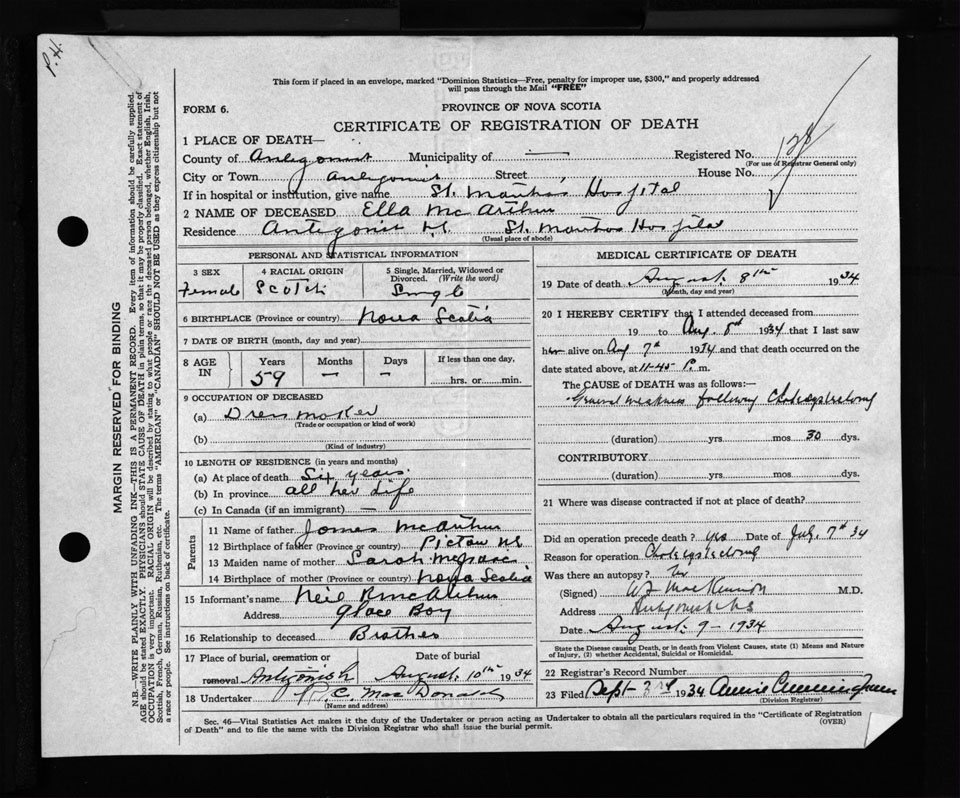 P.H.
This form if placed in an envelope, marked "Dominion Statistics—Free, penalty for improper use, $300," and properly addressed
will pass through the Mail "FREE"
FORM 6.
PROVINCE OF NOVA SCOTIA
CERTIFICATE OF REGISTRATION OF DEATH
1 PLACE OF DEATH—
County of Antigonish Municipality of — Registered No. 128
(For use of Registrar General only)
City or Town Antigonish Street House No.
If in hospital or institution, give name St. Martha's Hospital
2 NAME OF DECEASED Ella McArthur
Residence Antigonish N.S. St. Marthas Hospital
(Usual place of abode)
PERSONAL AND STATISTICAL INFORMATION
3 SEX
Female
4 RACIAL ORIGIN
Scotch
5 Single, Married, Widowed or
Divorced. (Write the word)
Single
6 BIRTHPLACE (Province or country) Nova Scotia
7 DATE OF BIRTH (month, day and year)
8 AGE IN
Years Months Days If less than one day,
59 — — hrs. or min.
9 OCCUPATION OF DECEASED
(a) Dressmaker
(Trade or occupation or kind of work)
(b)
(Kind of industry)
10 LENGTH OF RESIDENCE (in years and months)
(a) At place of death Six years
(b) In province all her life
(c) In Canada (if an immigrant) —
Parents
11 Name of father James McArthur
12 Birthplace of father (Province or country) Pictou NS
13 Maiden name of mother Sarah McIsaac
14 Birthplace of mother (Province or country) Nova Scotia
15 Informant's name Neil R McArthur
Address Glace Bay
16 Relationship to deceased Brother
17 Place of burial, cremation or removal Antigonish
Date of burial August 10th 1934
18 Undertaker C. MacDonald
(Name and address)
MEDICAL CERTIFICATE OF DEATH
19 Date of death August 8th 1934
(Month, day and year)
20 I HEREBY CERTIFY that I attended deceased from
19 to Aug. 8th 1934 that I last saw
her alive on Aug 7th 1934 and that death occurred on the
date stated above, at 11-45 P. m.
The CAUSE OF DEATH was as follows:—
General weakness following Cholecystectomy
(duration) yrs. mos 30 dys.
CONTRIBUTORY
(duration) yrs. mos. dys.
21 Where was disease contracted if not at place of death?
Did an operation precede death? yes Date of July 7th 34
Reason for operation Cholecystectomy
Was there an autopsy? No
(Signed) W F MacKinnon M.D.
Address Antigonish NS
Date August 9 - 1934
State the Disease causing Death, or in death from Violent Causes, state (1) Means and Nature
of Injury, (2) whether Accidental, Suicidal or Homicidal.
22 Registrar's Record Number
23 Filed Sept 3rd 1934 Annie Cunningham
(Division Registrar)
Sec. 46—Vital Statistics Act makes it the duty of the Undertaker or person acting as Undertaker to obtain all the particulars required in the "Certificate of Registration
of Death" and to file the same with the Division Registrar who shall issue the burial permit.
(OVER)
MARGIN RESERVED FOR BINDING
N.B.—WRITE PLAINLY WITH UNFADING INK—THIS IS A PERMANENT RECORD. Every item of information should be carefully supplied.
AGE should be stated EXACTLY. PHYSICIANS should STATE CAUSE OF DEATH in plain terms, so that it may be properly classified. Exact statement of
OCCUPATION is very important. RACIAL ORIGIN will be described by stating to what people or race the deceased person belonged, whether English, Irish,
Scottish, French, German, Russian, Ruthenian, etc. The terms "AMERICAN" or "CANADIAN" SHOULD NOT BE USED as they express citizenship but not
a race or people. See instructions on back of certificate.